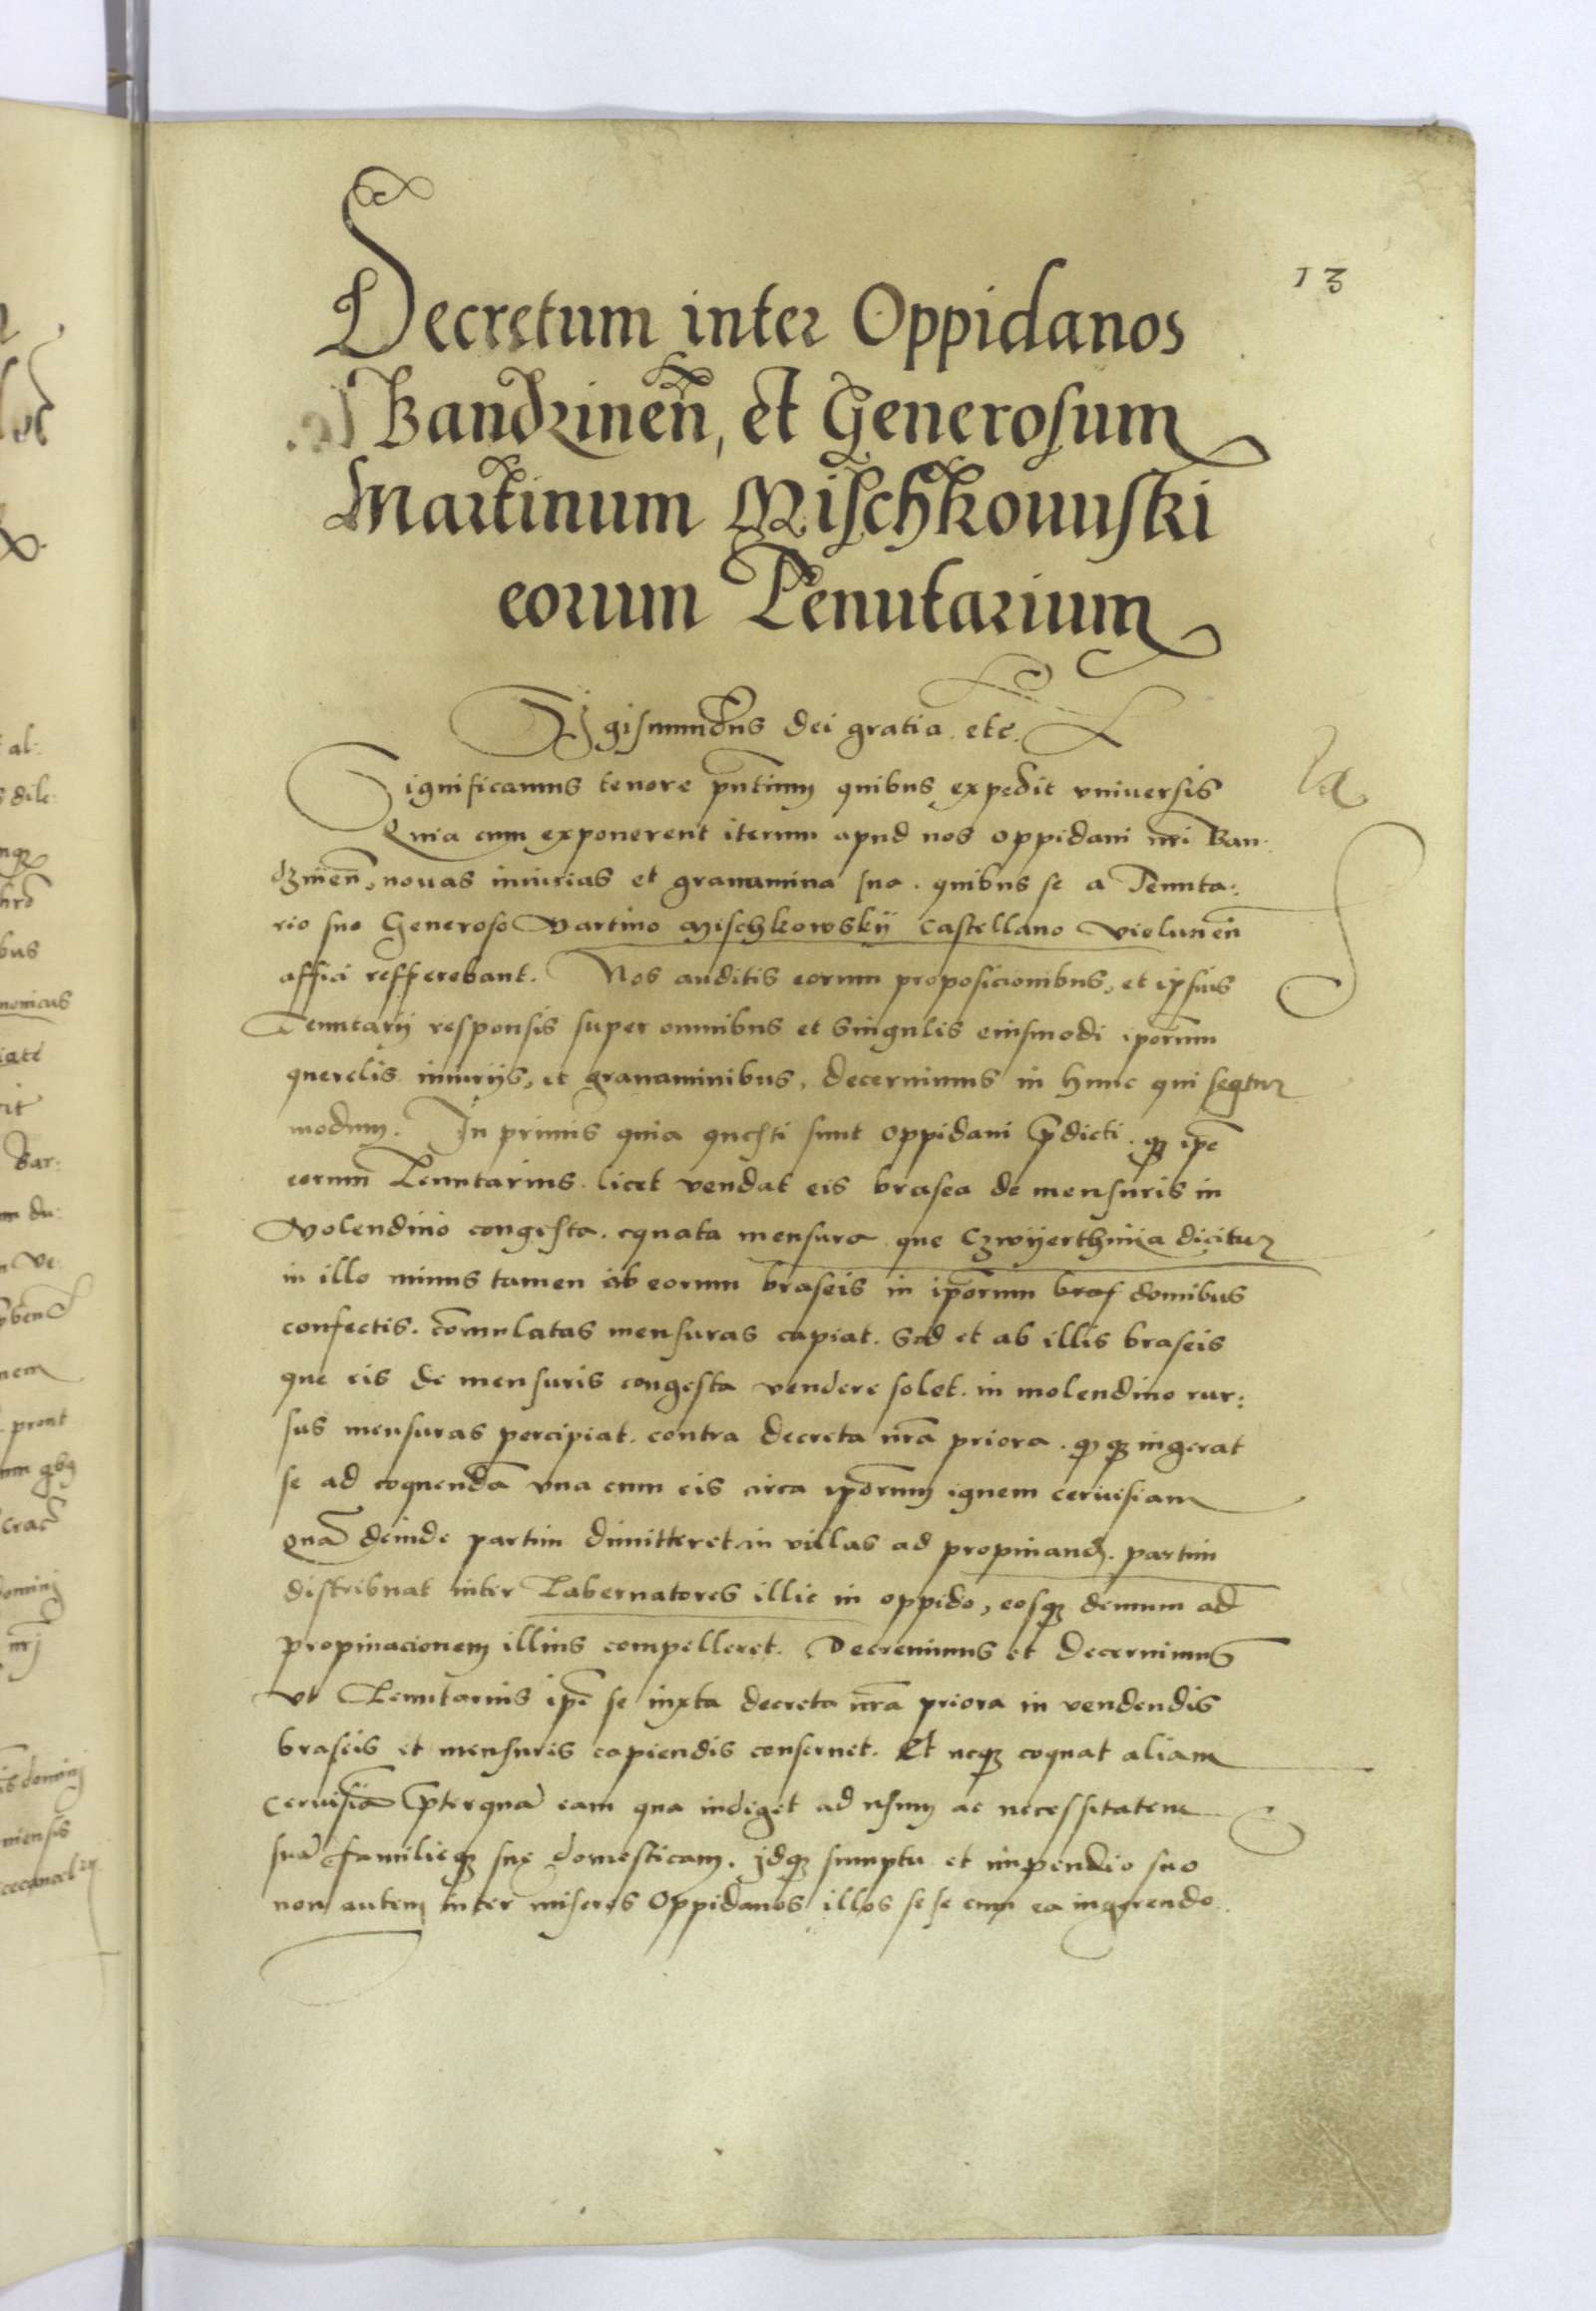 13
Decretum inter Oppidanos
Bandzinen̄, et Generosum
Martinum Mischkouuski
eorum Tenutarium
Sigismundus dei gratia etc.
Significamus tenore pn̄tium quibus expedit vniuersis
Quia cum exponerent iterum apud nos oppidani nr̄i Ban-
dzinen̄, nouas iniurias et grauamina sua. quibus se a Tenuta:
rio suo Generoso Martino Mischkowskÿ Castellano Vielunen̄
affici refferebant. Nos auditis eorum proposicionibus, et ipsius
Tenutarÿ responsis super omnibus et singulis eiusmodi ip̄orum
querelis iniurÿs, et grauaminibus, decernimus in hunc qui seqtur
modum. In primis quia questi sunt oppidani p̄dicti. qꝫ ip̄e
eorum Tenutarius licet vendat eis brasea de mensuris in
Molendino congesta. equata mensura que Czwÿerthnia dicitur
in illo minus tamen ab eorum braseis in ip̄orum bras domibus
confectis. comulatas mensuras capiat. Sed et ab illis braseis
que eis de mensuris congesta vendere solet. in molendino rur:
sus mensuras percipiat. contra decreta nr̄a priora. qꝫqꝫ ingerat
se ad coquendā vna cum eis circa ip̄orum ignem ceruisiam
quā deinde partim dimitteret in villas ad propinand. partim
distribuat inter Tabernatores illic in oppido, eosqꝫ demum ad
propinacionem illius compelleret. Decreuimus et decernimus
vt Tenutarius ip̄e se iuxta decreta nr̄a priora in vendendis
braseis et mensuris capiendis conseruet. Et neqꝫ coquat aliam
ceruisiā p̄terquā eam qua indiget ad usum ac necessitatem
suā familieqꝫ suę domesticam. jdqꝫ sumptu et impendio suo
non autem inter miseros Oppidanos illos se se cum ea ingerendo.